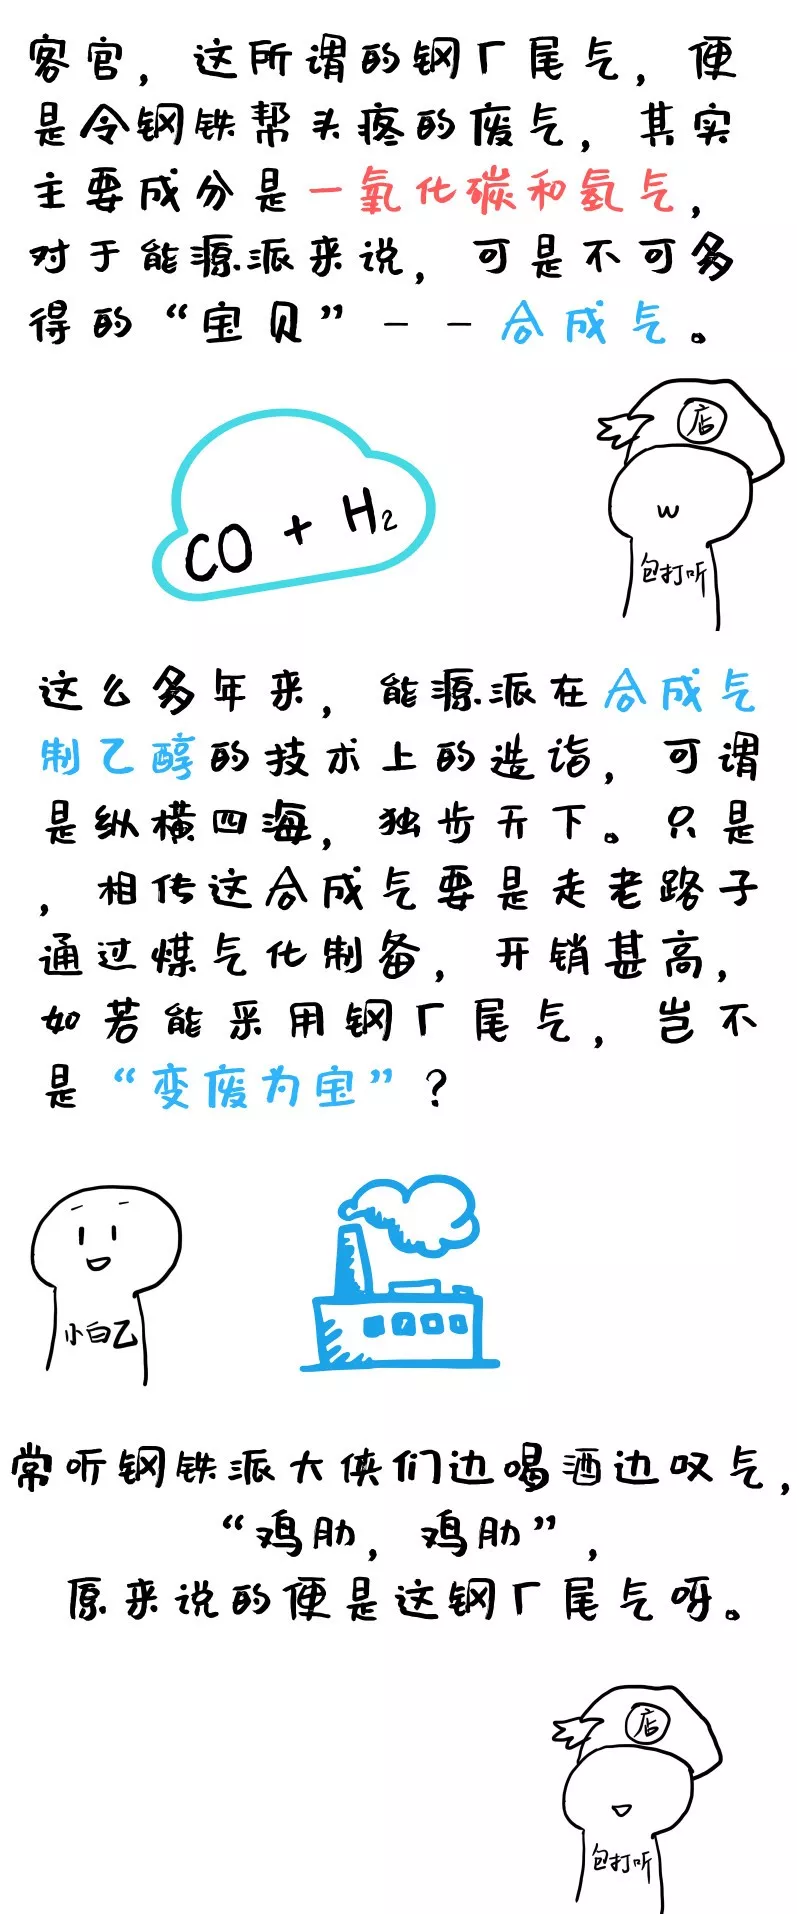 客官，这所谓的钢厂尾气，便
是令钢铁帮头疼的废气，其实
主要成分是一氧化碳和氢气，
对于能源派来说，可是不可多
得的“宝贝”--合成气。
店
CO + H₂
包打听
这么多年来，能源派在合成气
制乙醇的技术上的造诣，可谓
是纵横四海，独步天下。只是
，相传这合成气要是走老路子
通过煤气化制备，开销甚高，
如若能采用钢厂尾气，岂不
是“变废为宝”？
小白乙
常听钢铁派大侠们边喝酒边叹气，
“鸡肋，鸡肋”，
原来说的便是这钢厂尾气呀。
店
包打听